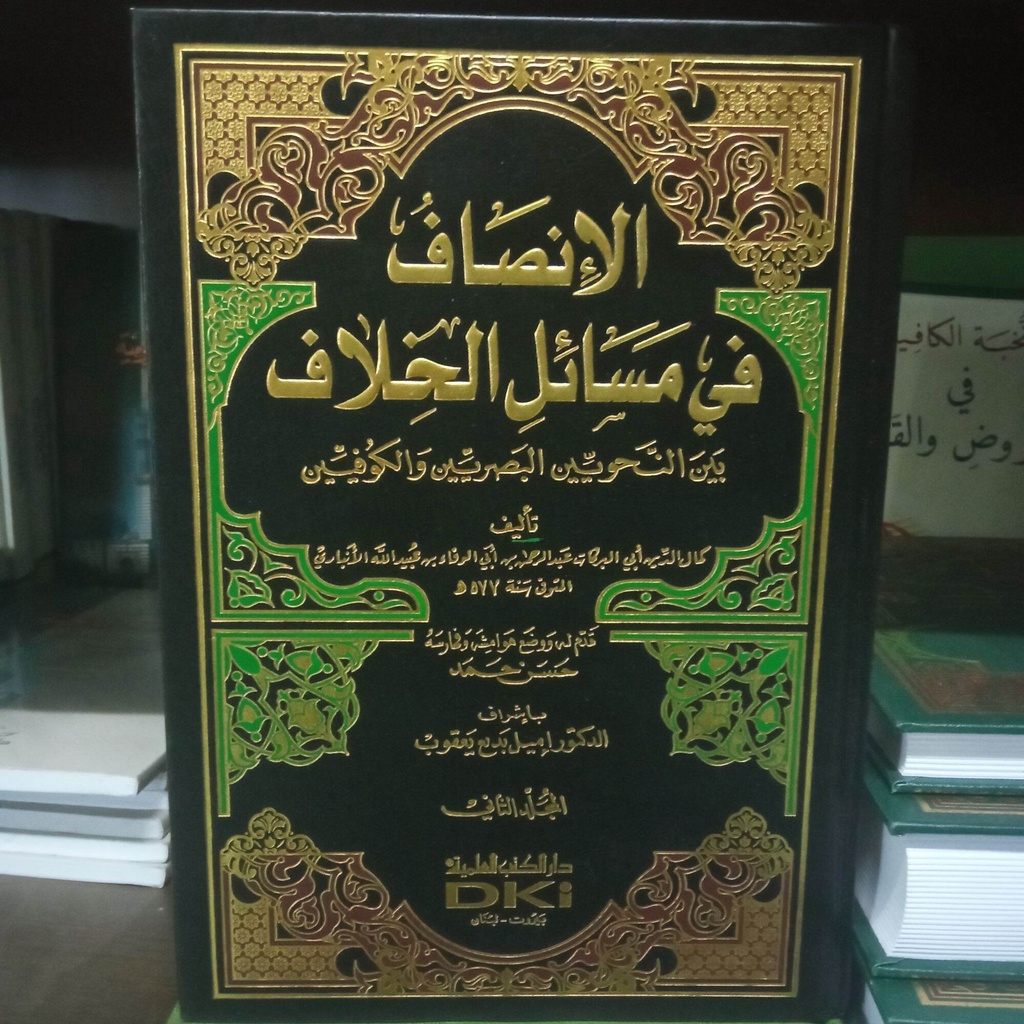 الإنصافُ
في مَسَائلِ الخِلاف
بَينَ النَّحويّين البَصريّين وَالكوُفيّين
تأليف
كمال الدّين أبي البركات عَبد الرحمٰن بن أبي الوفاء بن عُبيد الله الأنباري
المتوفى سَنة ٥٧٧ هـ
قدّم له ووضع هوامشه وفهارسه
حسَن حمَد
بإشراف
الدكتور إميل بديع يَعقوب
المجُلّد الثاني
دار الكتب العلمية
DKi
بيروت - لبنان
نخبة الكافية
في
العروضِ والقَ